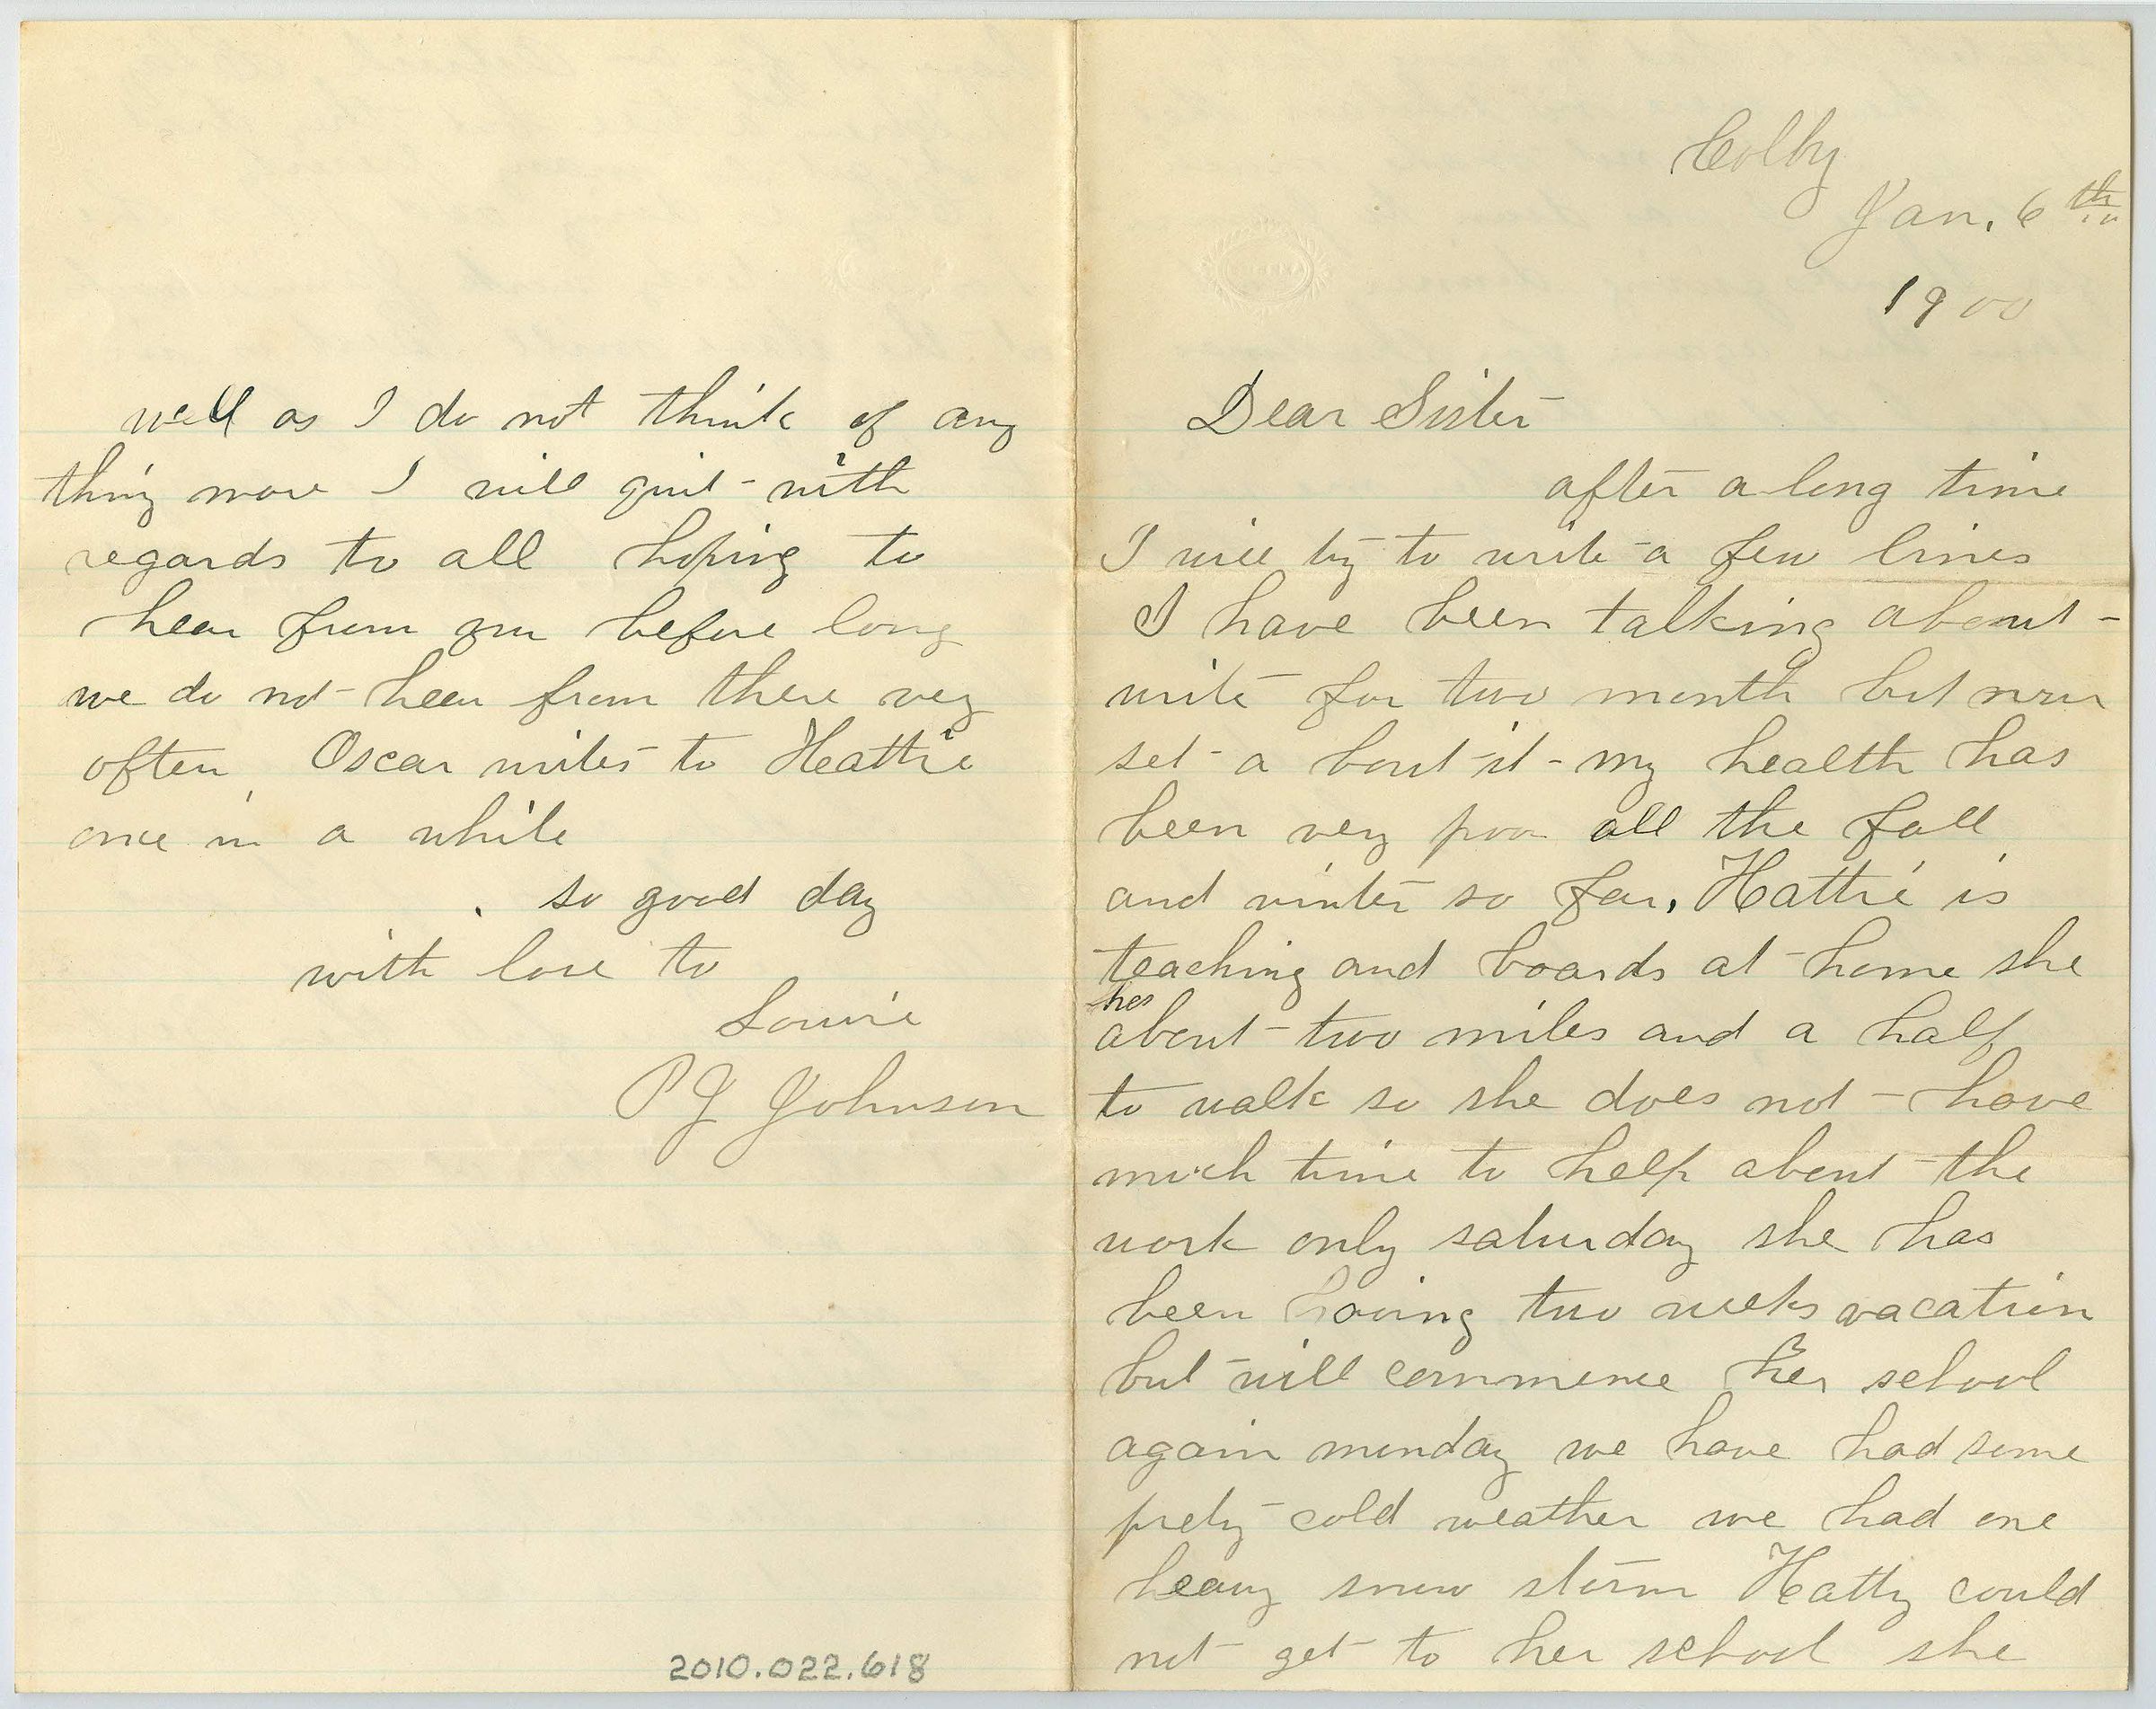 Colby
Jan. 6th
1900
Dear Sister
after a long time
I will try to write a few lines
I have been talking about
write for two month but now
set a bout it my health has
been very poor all the fall
and winter so far, Hattie is
teaching and boards at home she
has
about two miles and a half
to walk so she does not have
much time to help about the
work only saturday she has
been having two weeks vacation
but will commence her school
again monday we have had some
prety cold weather we had one
heavy snow storm Hatty could
not get to her school she
well as I do not think of any
thing more I will quit with
regards to all hoping to
hear from you before long
we do not hear from there very
often Oscar writes to Heattie
once in a while
so good day
with love to
Louvie
P J Johnson
2010.022.618